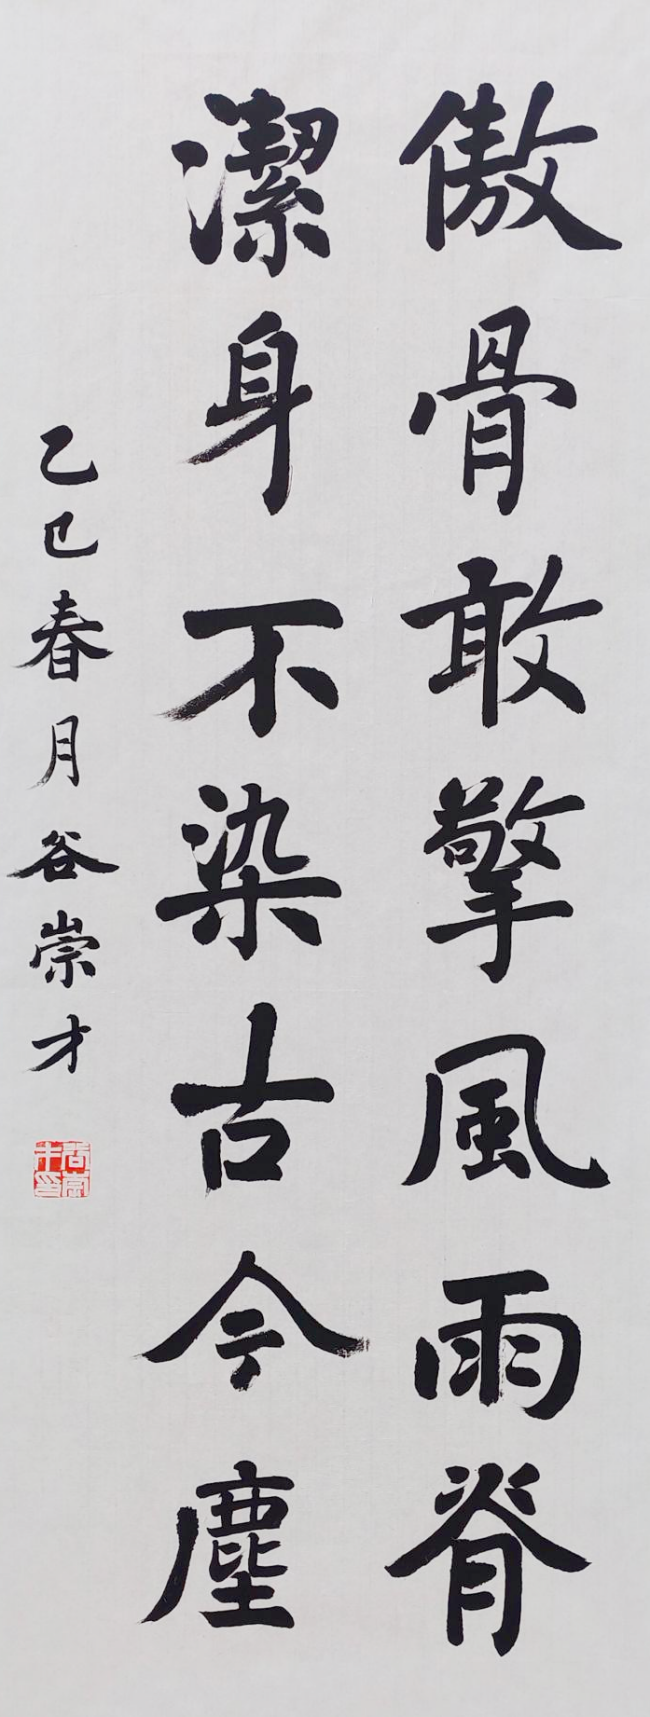 傲骨敢擎風雨脊
潔身不染古今塵
乙巳春月谷崇才
谷崇才印